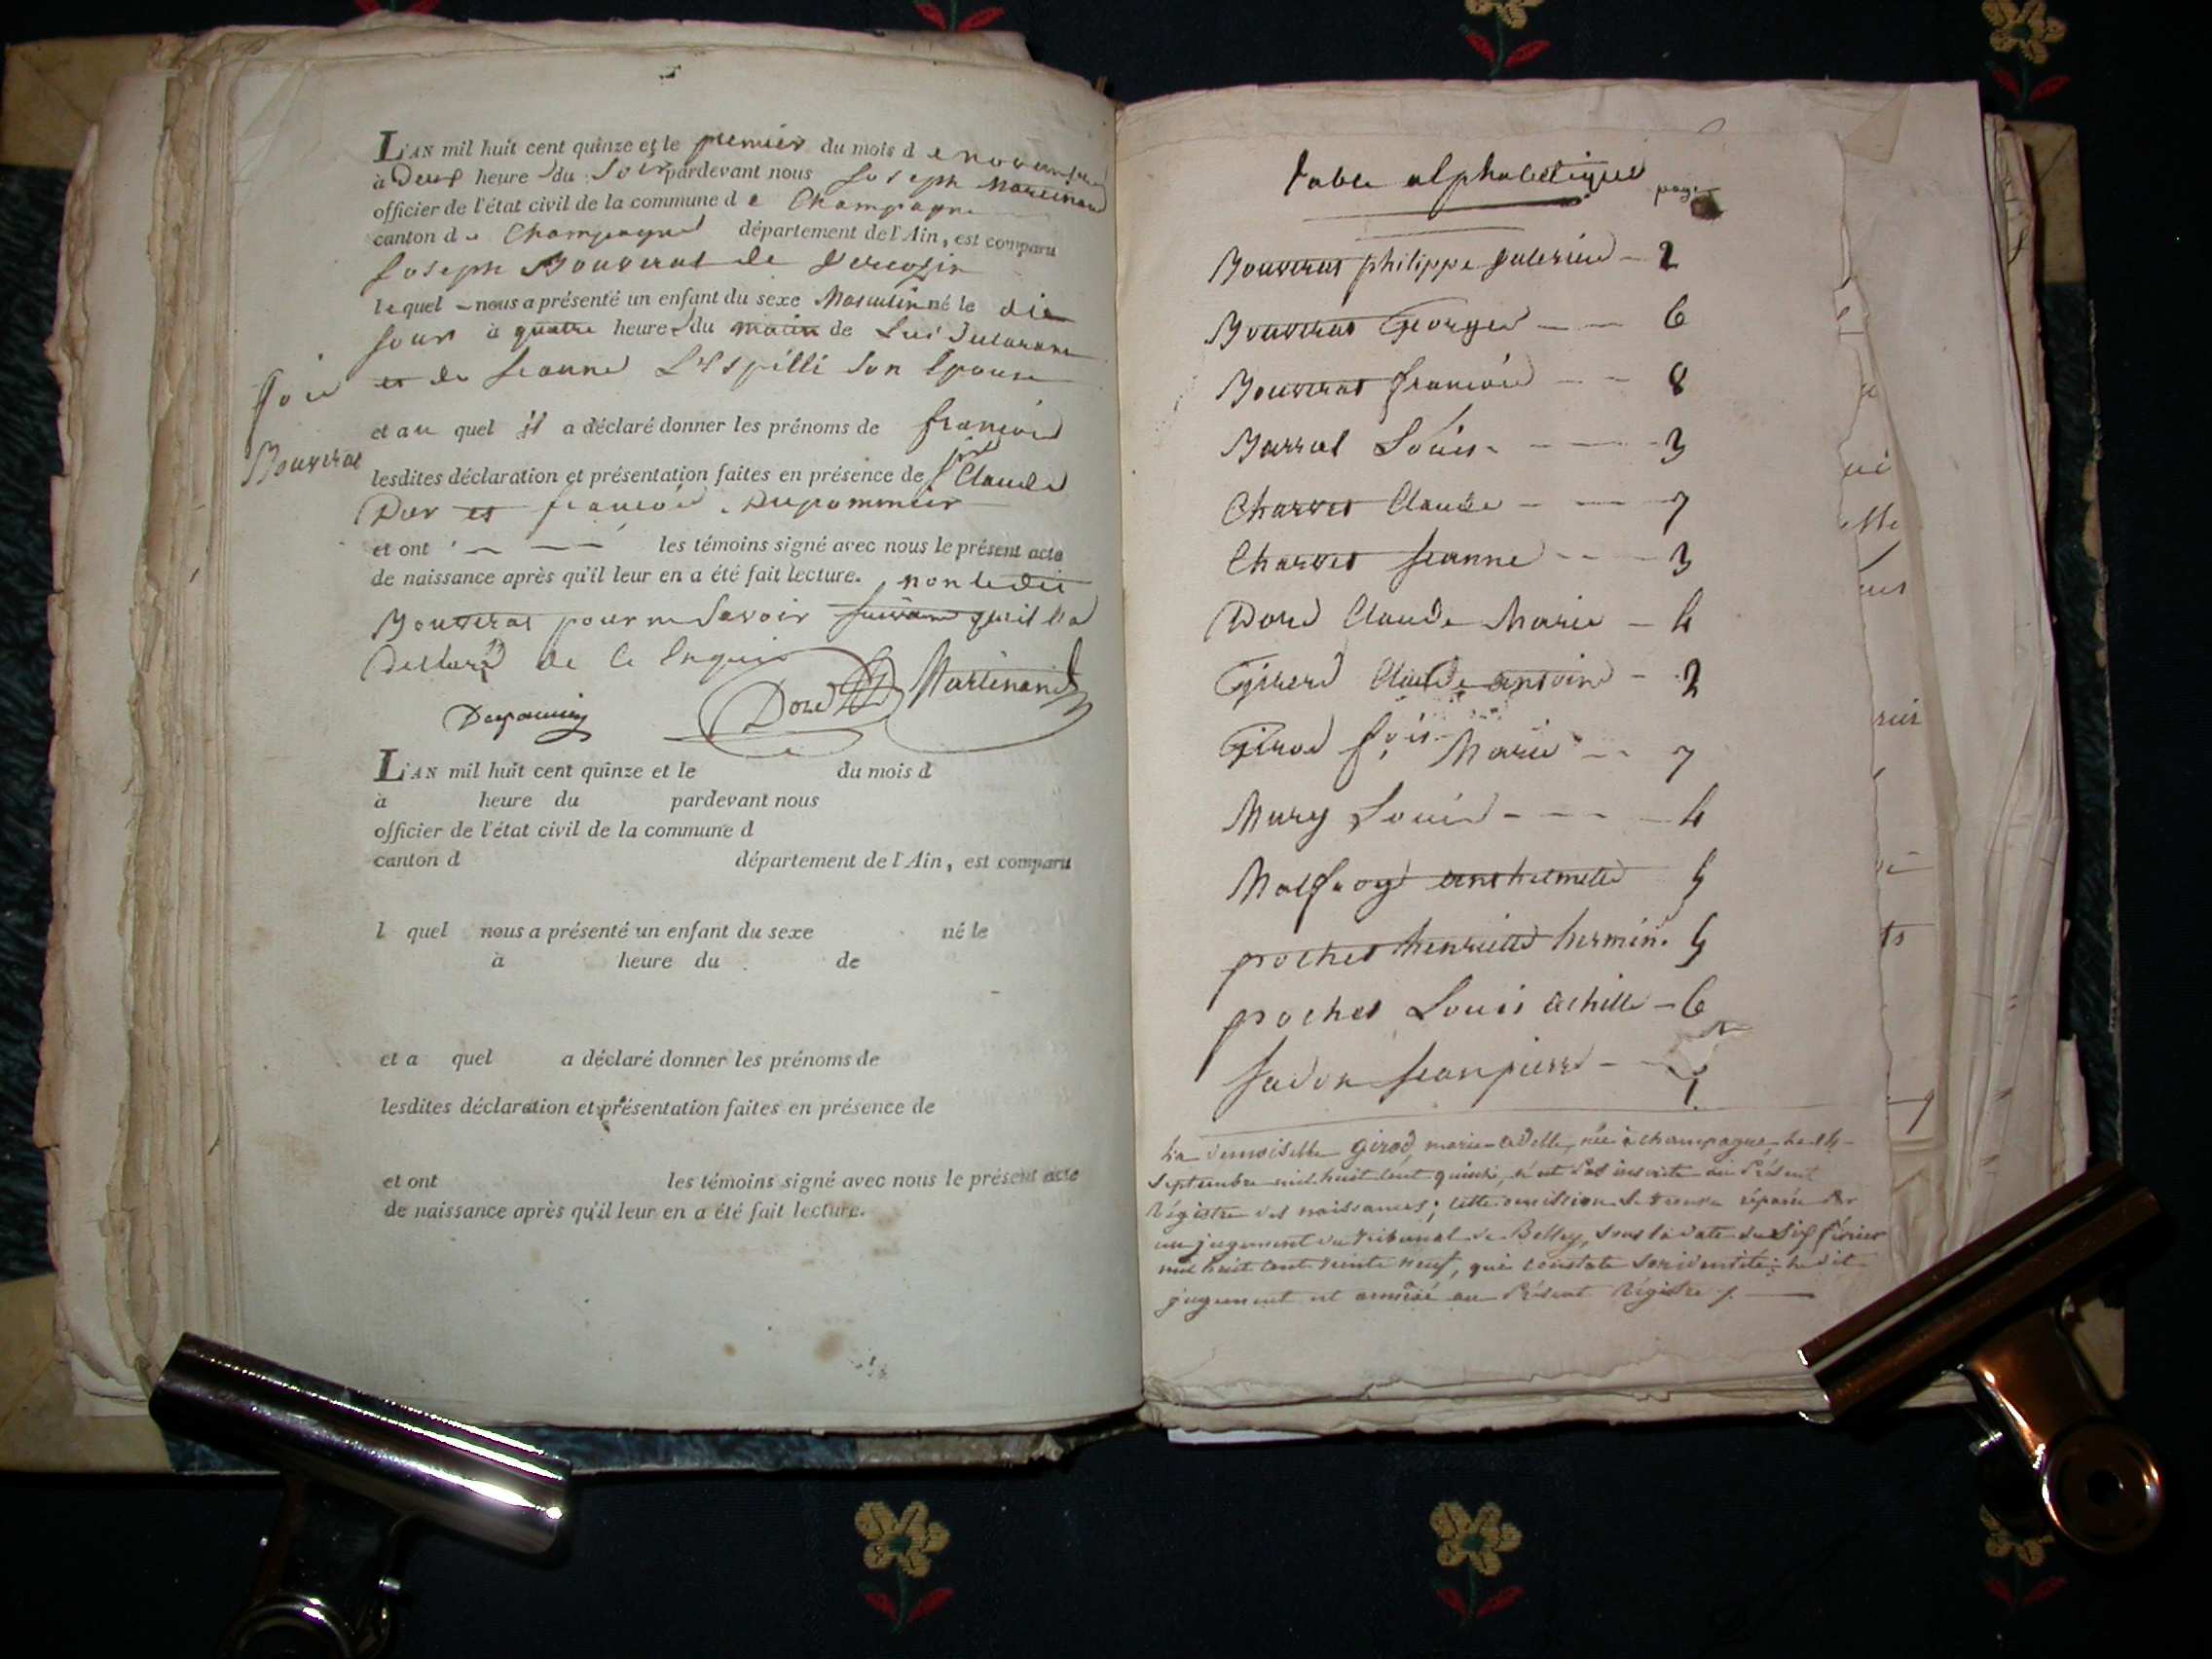 L'AN mil huit cent quinze et le premier du mois d e novembre
à Deux heure du Soir pardevant nous Joseph Martinand
officier de l'état civil de la commune d e Champagne
canton d e Champagne département de l'Ain, est comparu
Joseph Bouverat de
lequel nous a présenté un enfant du sexe Masculin né le dit
jour à quatre heure du matin de Lui Declarant
et de Jeanne son Epouse
et au quel il a déclaré donner les prénoms de françois
Bouverat
lesdites déclaration et présentation faites en présence de Claude
Dor et françois Dupommier
et ont les témoins signé avec nous le présent acte
de naissance après qu'il leur en a été fait lecture. non ledit
Bouverat pour ne Savoir qu'il l'a
Declaré de ce Enquis
Dord Martinand
Dupommier
L'AN mil huit cent quinze et le du mois d
à heure du pardevant nous
officier de l'état civil de la commune d
canton d département de l'Ain, est comparu
l quel nous a présenté un enfant du sexe né le
à heure du de
et a quel a déclaré donner les prénoms de
lesdites déclaration et présentation faites en présence de
et ont les témoins signé avec nous le présent acte
de naissance après qu'il leur en a été fait lecture.
table alphabétique
page
Bouverat philippe - 2
Bouverat George - - 6
Bouverat françois - - 8
Barral Louis - - 3
Charvet Claude - - 7
Charvet Jeanne - - 3
Dord Claude Marie - 4
Girerd Claude antoine - 2
Girod fçois Marie - - 7
Mury Louis - - - 4
anthelmette 5
pochet henriette hermin. 5
pochet Louis achille - 6
Jean pierre - - 1
La demoiselle Girod, marie-adelle, née à champagne, le 14
septembre mil huit cent quinze, n'est pas inscrite au présent
Régistre des naissances; cette omission se trouve réparée par
un jugement du tribunal de Belley, sous la date du six février
mil huit cent trente neuf, qui constate son identité; le dit
jugement est annexé au présent Régistre /.